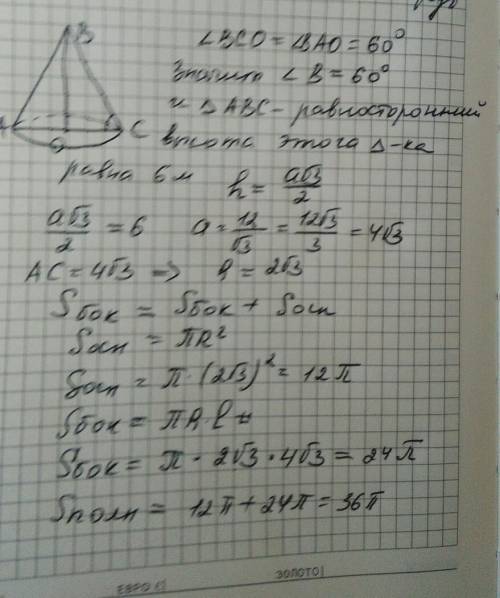 ∠BCO = ∠BAO = 60°
Значит ∠B = 60°
и ΔABC - равносторонний
высота этого Δ-ка
равна 6 м
h = a√3/2
a√3/2 = 6 a = 12/√3 = 12√3/3 = 4√3
AC = 4√3 => R = 2√3
Sбок = Sбок + Sосн
Sосн = πR²
Sосн = π · (2√3)² = 12π
Sбок = πR·l
Sбок = π · 2√3 · 4√3 = 24π
Sполн = 12π + 24π = 36π
B
A
C
O
ЕВРО
ЗОЛОТО